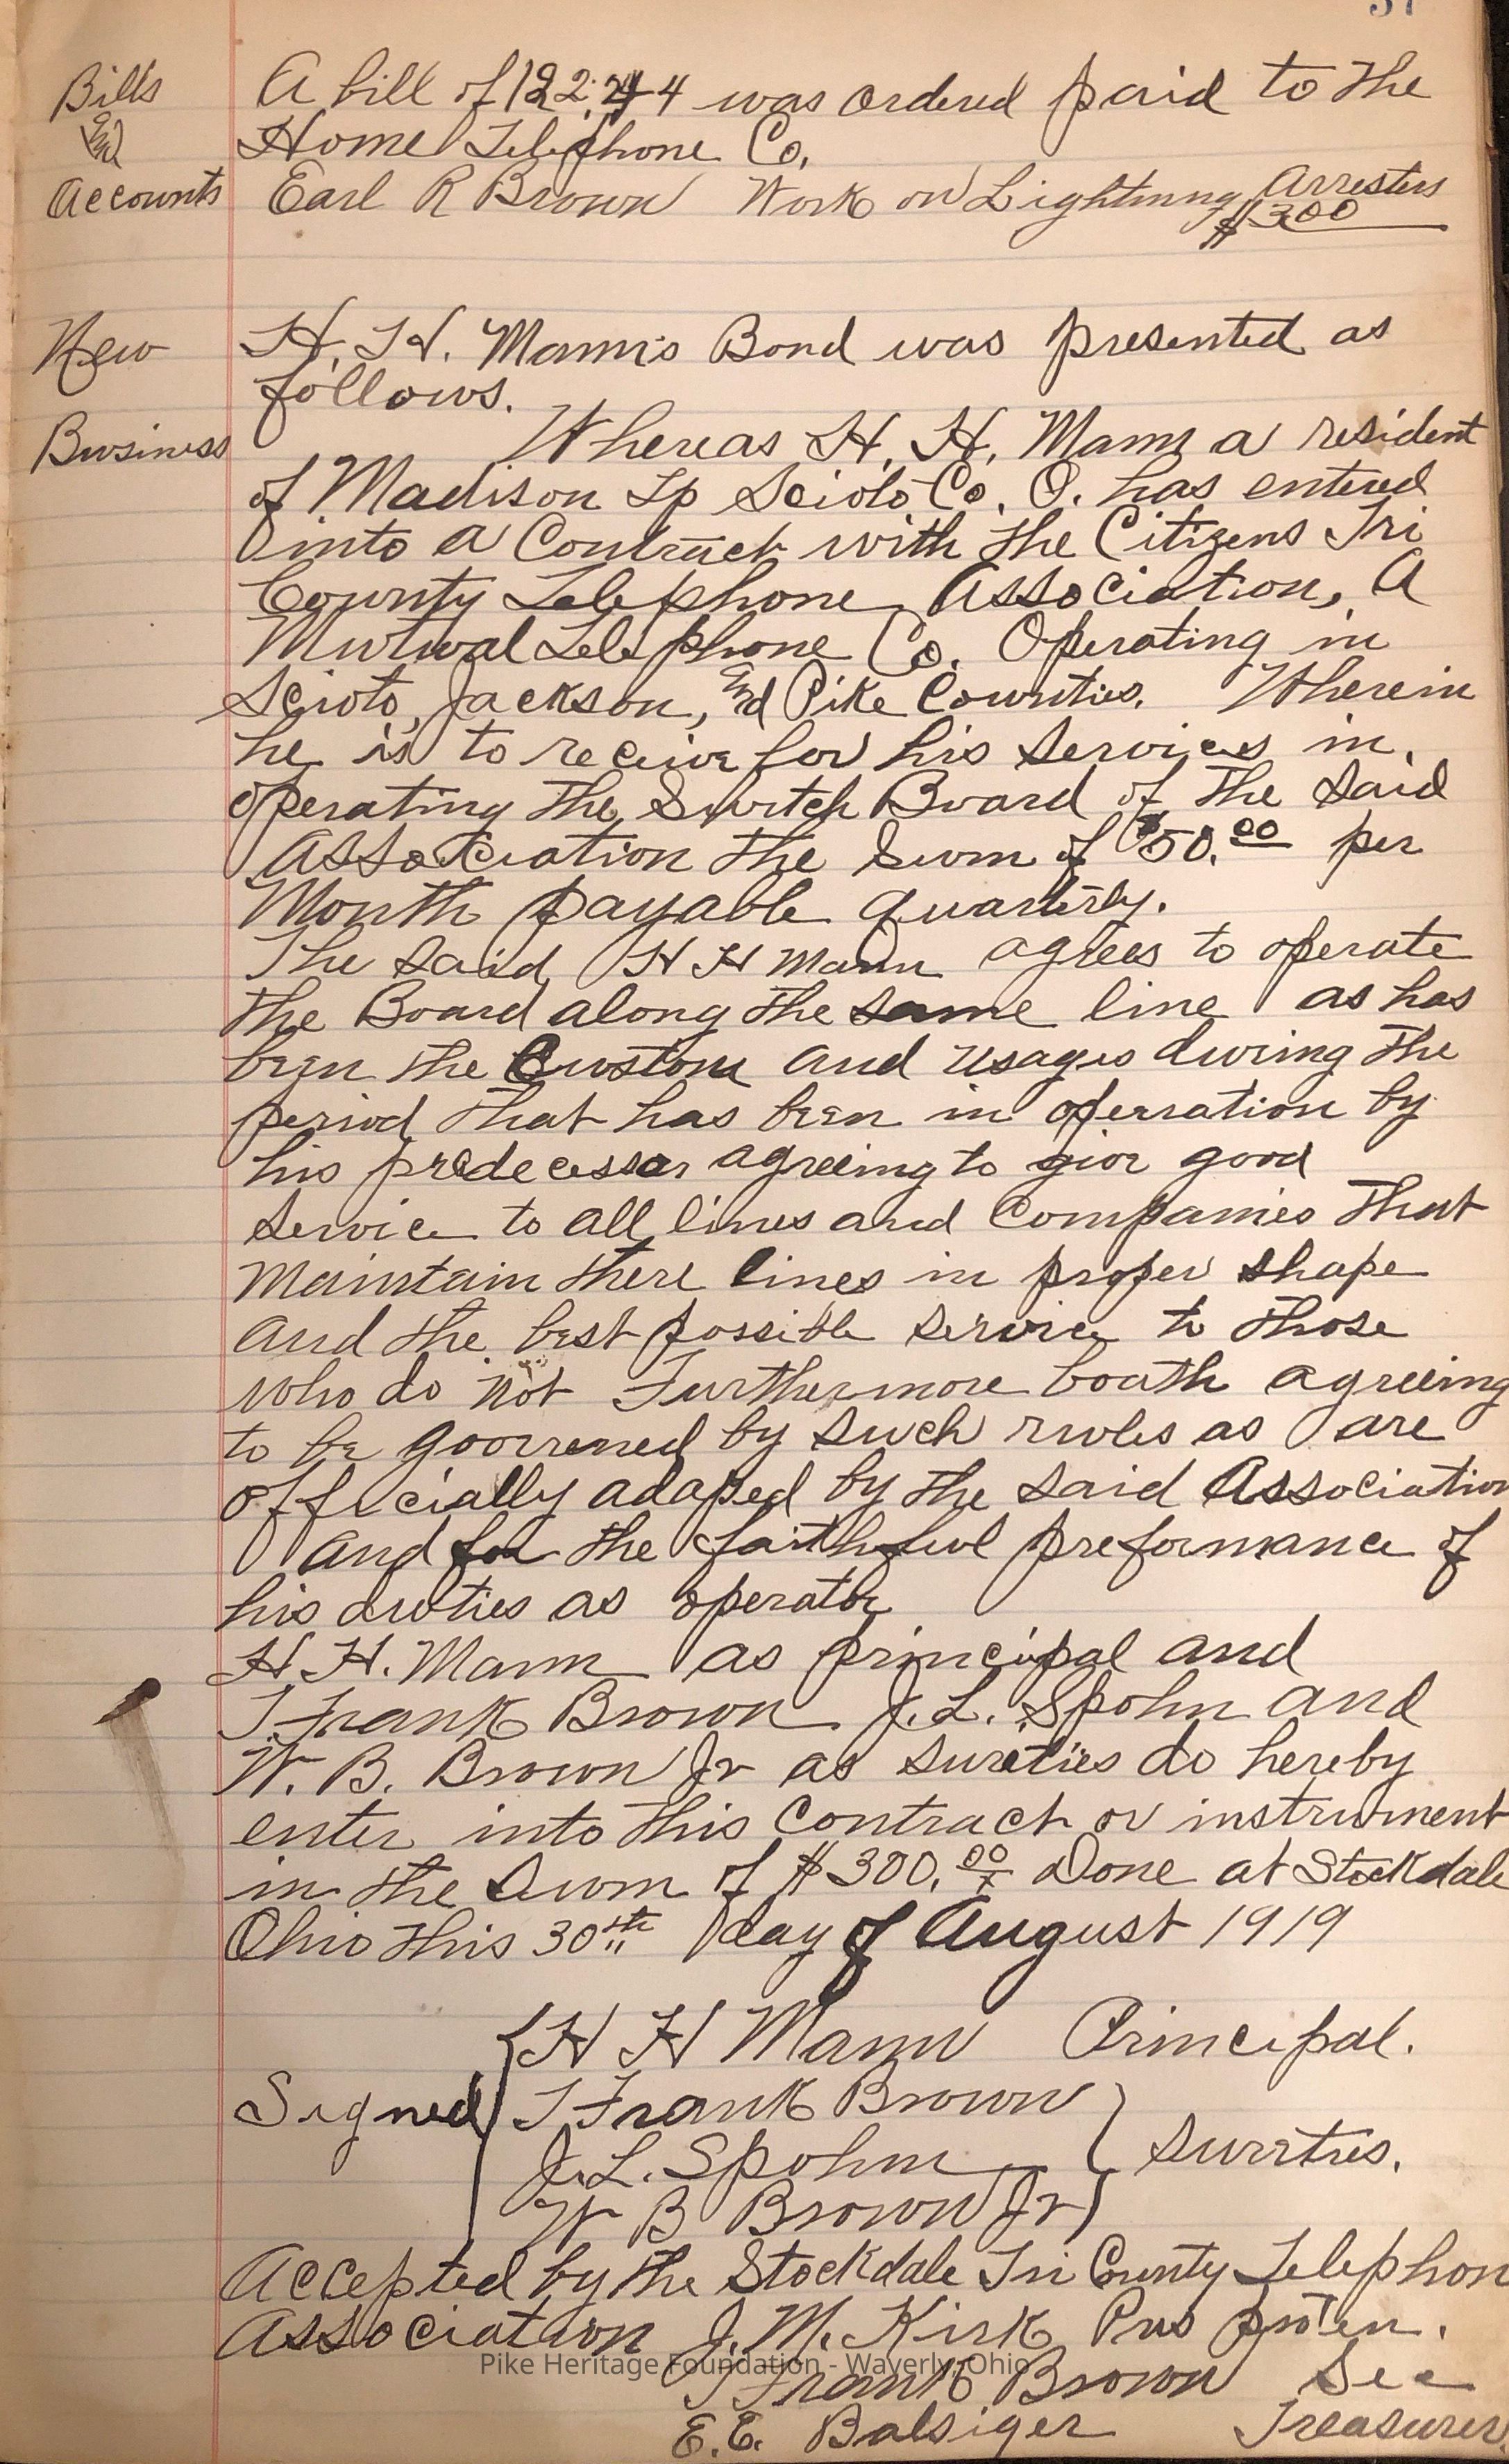 Bills
A bill of 122.44 was ordered paid to the
And
Home Telephone Co.
Accounts
Earl R Brown Work on Lightning Arresters
$300
New
H. H. Mann's Bond was presented as
follows.
Business
Whereas H. H. Mann a resident
of Madison Tp Scioto Co. O. has entered
into a Contract with the Citizens Tri
County Telephone Association, A
Mutual Telephone Co. Operating in
Scioto, Jackson, And Pike Counties. Wherein
he is to receive for his Services in
operating the Switch Board of the Said
Association the Sum of $50.00 per
Month payable quarterly.
The Said H H Mann agrees to operate
the Board along the same line as has
been the Custom and usages during the
period that has been in operration by
his predecessor agreeing to give good
Service to all lines and Companies that
Maintain there lines in proper shape
and the best possible service to those
who do not Furthermore boath agreeing
to be goverened by such rules as are
officially adaped by the said Association
and for the faithful preformance of
his duties as operator
H. H. Mann as principal and
T. Frank Brown J. L. Spohn and
W. B. Brown Jr as sureties do hereby
enter into this Contract or instrument
in the Sum of $300.00 Done at Stockdale
Ohio this 30th day of August 1919
H H Mann Principal.
Signed T Frank Brown
J. L. Spohn Surties.
W B Brown Jr
Accepted by the Stockdale Tri County Telephon
Association J. M. Kirk Pres protem.
Pike Heritage Foundation - Waverly, Ohio
T Frank Brown Sec
E. E. Balsiger Treasurer